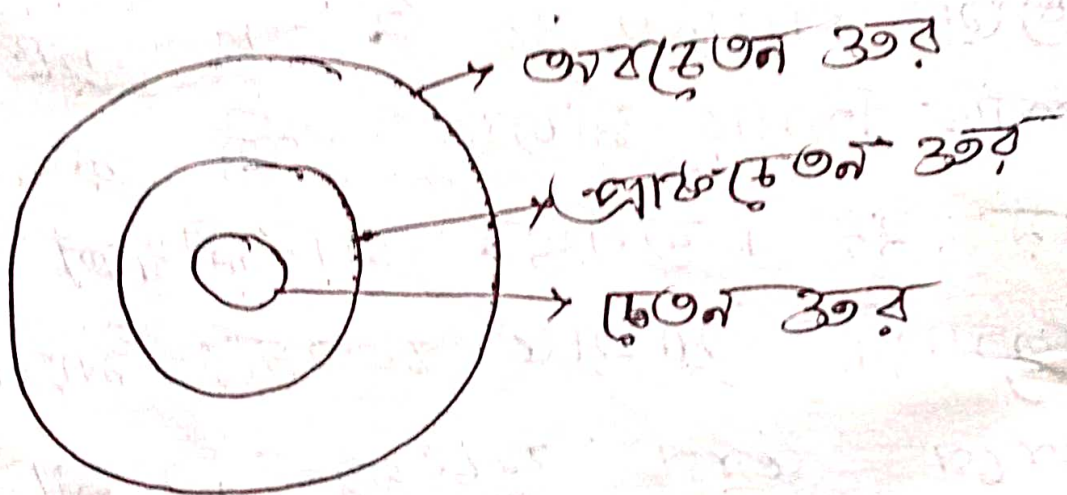 অবচেতন স্তর
প্রাকচেতন স্তর
চেতন স্তর